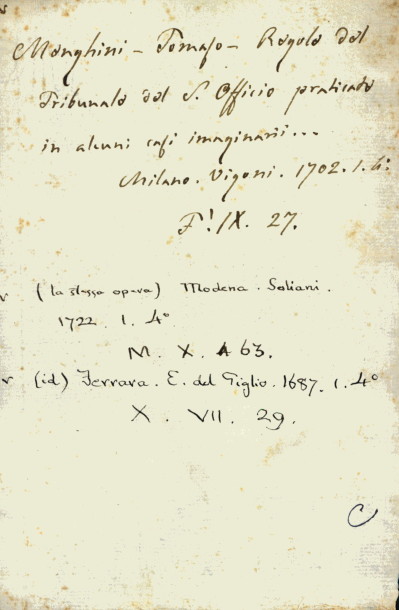 Menghini - Tomaso - Regole del
Tribunale del S. Officio praticate
in alcuni casi imaginarii...
Milano. Vigoni. 1702. 1. 6:
F! IX. 27.
v (la stessa opera) Modena. Soliani.
1722. 1. 4º
M. X. A 63.
v (id) Ferrara. E. del Giglio. 1687. 1. 4º
X. VII. 29.
C